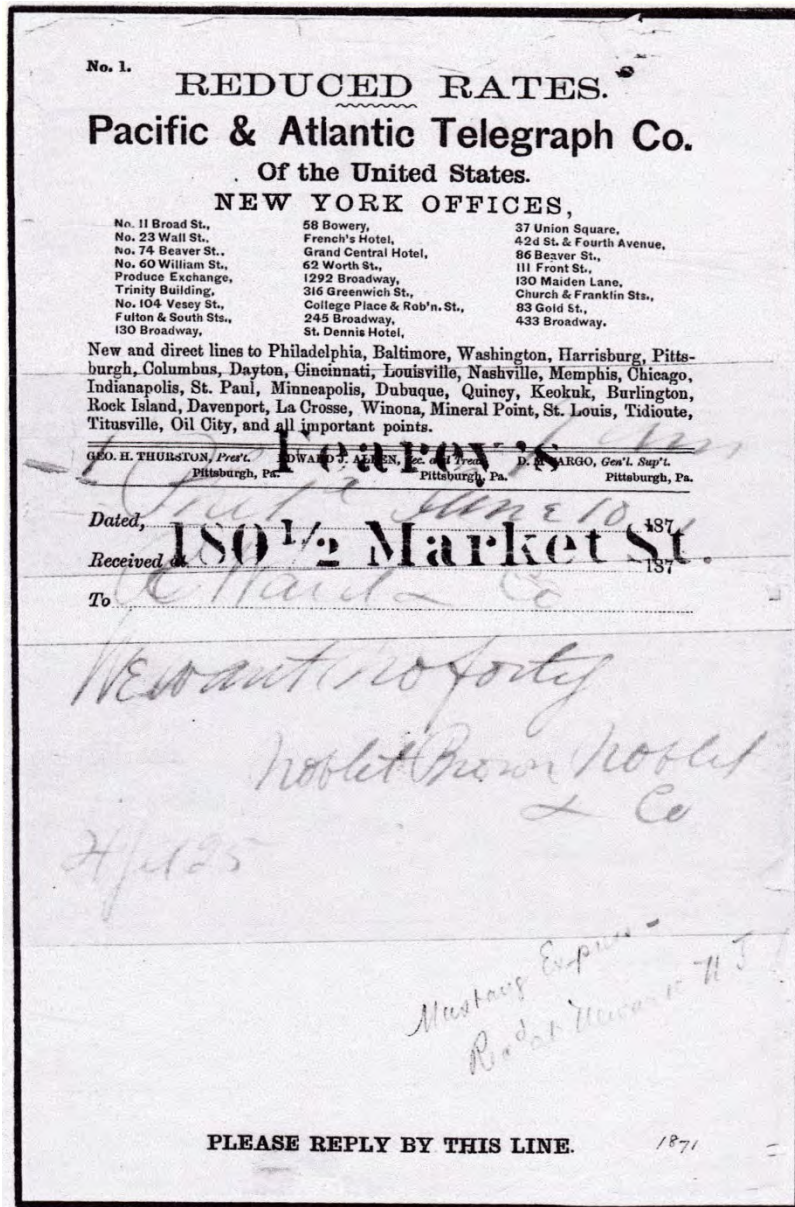 No. 1.
REDUCED RATES.
Pacific & Atlantic Telegraph Co.
Of the United States.
NEW YORK OFFICES,
No. 11 Broad St.,
No. 23 Wall St.,
No. 74 Beaver St.,
No. 60 William St.,
Produce Exchange,
Trinity Building,
No. 104 Vesey St.,
Fulton & South Sts.,
130 Broadway,
58 Bowery,
French's Hotel,
Grand Central Hotel,
62 Worth St.,
1292 Broadway,
316 Greenwich St.,
College Place & Rob'n. St.,
245 Broadway,
St. Dennis Hotel,
37 Union Square,
42d St. & Fourth Avenue,
86 Beaver St.,
111 Front St.,
130 Maiden Lane,
Church & Franklin Sts.,
83 Gold St.,
433 Broadway.
New and direct lines to Philadelphia, Baltimore, Washington, Harrisburg, Pitts-
burgh, Columbus, Dayton, Cincinnati, Louisville, Nashville, Memphis, Chicago,
Indianapolis, St. Paul, Minneapolis, Dubuque, Quincy, Keokuk, Burlington,
Rock Island, Davenport, La Crosse, Winona, Mineral Point, St. Louis, Tidioute,
Titusville, Oil City, and all important points.
GEO. H. THURSTON, Pres't. EDWARD J. ALLEN, Sec. and Treas. D. M. ARGO, Gen'l. Sup't.
Pittsburgh, Pa. Pittsburgh, Pa. Pittsburgh, Pa.
Fearey's
Dated, June 10 187
180 ½ Market St.
Received at 187
To Ward & Co
We want no forty
Noblit Brown Noblit
& Co
25
Mustang Express
Rec'd at Newark N J
PLEASE REPLY BY THIS LINE.
1871